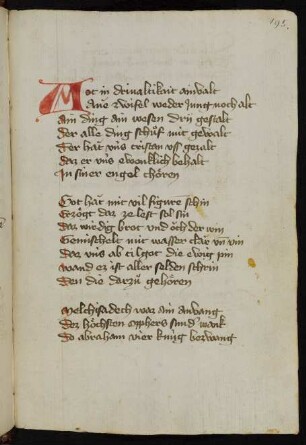 193.
Got in drivaltikait ainvalt
Ane zwifel weder jung noch alt
Ain ding ain wesen dry gestalt
Der alle ding schuf mit gewalt
Der hat uns cristan uss gezalt
Daz er uns ewenklich behalt
In siner engel chören
Got hat mit vil figure schin
Erzögt daz ze lest sol sin
Daz wirdig brot und öch der win
Gemischelt mit wasser clar un vin
Daz uns ab tilgot die ewig pin
Wand ez ist aller selden schrin
Den die darzů gehören
Melchisadech waz ain anvang
Dez höchsten opphers sund wank
Do abraham vier küng bezwang